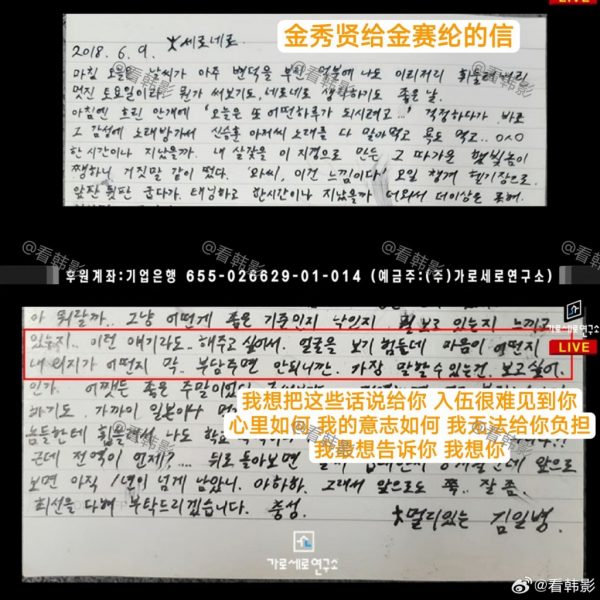 金秀贤给金赛纶的信
LIVE
2018. 6. 9. 大세로네로
아침 오늘은 날씨가 아주 변덕을 부린 덕분에 나도 이리저리 휘둘려버린
멋진 토요일이라. 뭔가 써보기도, 네로네로 생각하기도 좋은 날.
아침엔 흐린 안개에 '오늘은 또 어떤하루가 되시려고...' 걱정하다가 바로
그 감성에 노래방가서 신승훈 아저씨 노래를 다 말아먹고 욕도 먹고.. 0^0
한시간이나 지났을까. 내 살갗을 이 지경으로 만든 그 따가운 햇빛놈이
쨍하니, 거짓말 같이 떴다. '와씨, 이건 느낌이다' 오일 챙겨 헬기장으로.
앞판 뒷판 굽다가. 태닝하고 한시간이나 지났을까 더워서 더이상은 못해.
@看韩影
@看韩影
후원계좌:기업은행 655-026629-01-014 (예금주:(주)가로세로연구소)
가로세로연구소
LIVE
아 뭐랄까.. 그냥 어떤게 좋은 기준인지 낙인지 뭘 보고 있는지 느끼고
있는지.. 이런 얘기라도.. 해주고 싶어서. 얼굴을 보기 힘들데 마음이 어떤지
내 의지가 어떤지 막.. 부담주면 안되니깐. 가장 말할 수 있는건, 보고싶어.
인가. 어쨌든 좋은 주말이었
하기도. 가까이 일본이나
놈들한테 휩쓸려서 나도
我想把这些话说给你 入伍很难见到你
心里如何 我的意志如何 我无法给你负担
我最想告诉你 我想你
근데 전역이 언제?.... 뒤로 돌아보면 앞으로
보면 아직 1년이 넘게 남았니. 아하하. 그래서 앞으로도 쭉.. 잘 좀.
최선을 다해 부탁드리겠습니다. 충성.
大멀리있는 김일병.
@看韩影
@看韩影
가로세로연구소
@看韩影